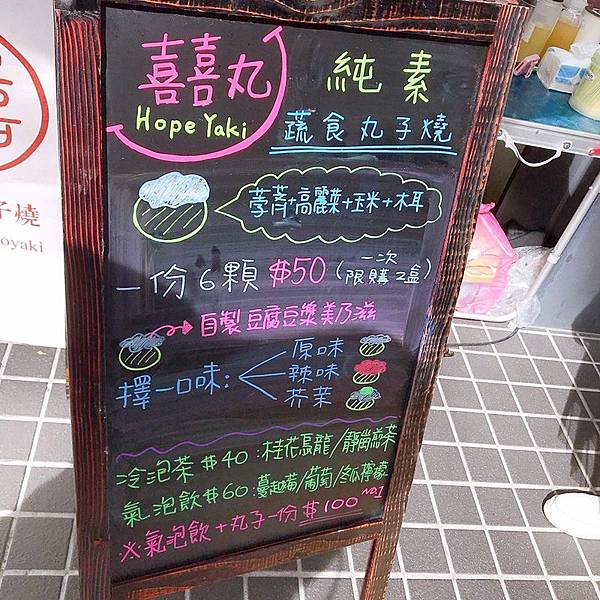 喜喜丸
Hope Yaki
純素
蔬食丸子燒
荸薺+高麗菜+玉米+木耳
一份6顆 $50 (一次限購2盒)
自製豆腐豆漿美乃滋
擇一口味:
原味
辣味
芥茉
冷泡茶$40:桂花烏龍/靜岡煎茶
氣泡飲$60:蔓越莓/葡萄/冬瓜檸檬
NO.1
※氣泡飲+丸子一份$100
子燒
oyaki